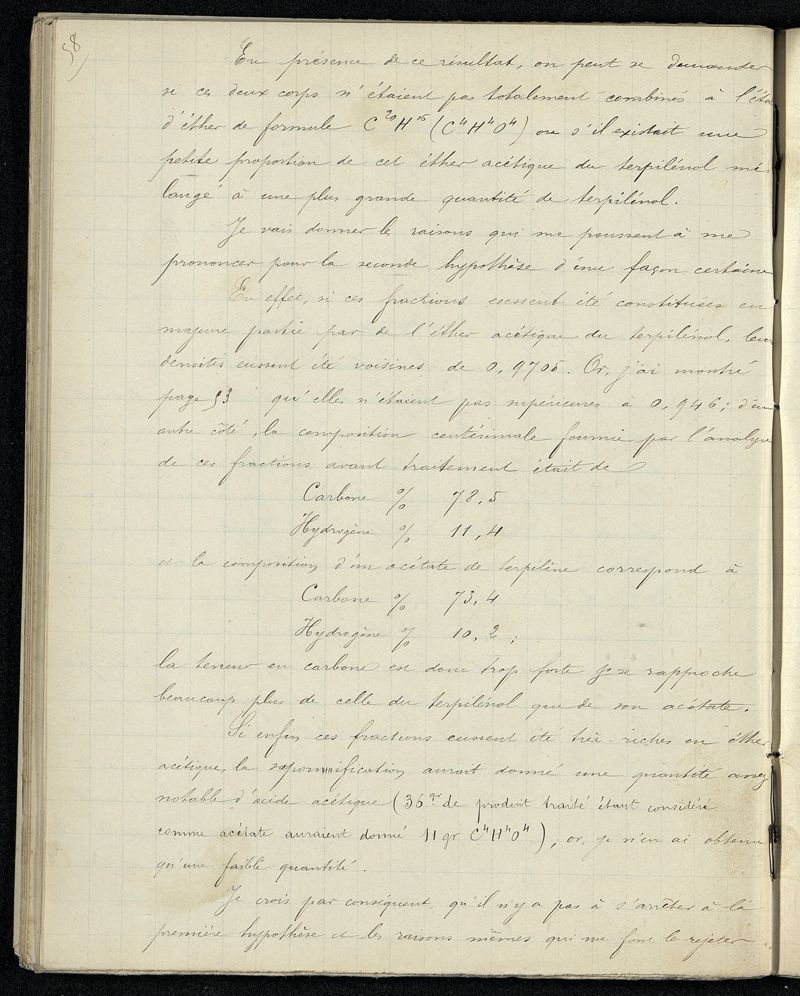 58
En présence de ce résultat, on peut se demander
si ces deux corps n'étaient pas totalement combinés à l'éta
d'éther de formule C²⁰H¹⁶ (C⁴H⁴O⁴) ou s'il existait une
petite proportion de cet éther acétique du terpilénol mé
langé à une plus grande quantité de terpilénol.
Je vais donner les raisons qui me poussent à me
prononcer pour la seconde hypothèse d'une façon certaine
En effet, si ces fractions eussent été constituées en
majeure partie par de l'éther acétique du terpilénol, leur
densités eussent été voisines de 0,9705. Or, j'ai montré
page 53 qu'elles n'étaient pas supérieures à 0,946; d'un
autre côté, la composition centésimale fournie par l'analyse
de ces fractions avant traitement était de
Carbone % 78,5
Hydrogène % 11,4
et la composition d'un acétate de terpilène correspond à
Carbone % 73,4
Hydrogène % 10,2;
la teneur en carbone est donc trop forte & se rapproche
beaucoup plus de celle du terpilénol que de son acétate.
Si enfin ces fractions eussent été très riches en éther
acétique, la saponification aurait donné une quantité assez
notable d'acide acétique (36gr de produit traité étant considéré
comme acétate auraient donné 11 gr C⁴H⁴O⁴); or, je n'en ai obtenu
qu'une faible quantité.
Je crois par conséquent qu'il n'y a pas à s'arrêter à la
première hypothèse et les raisons mêmes qui me font la rejeter